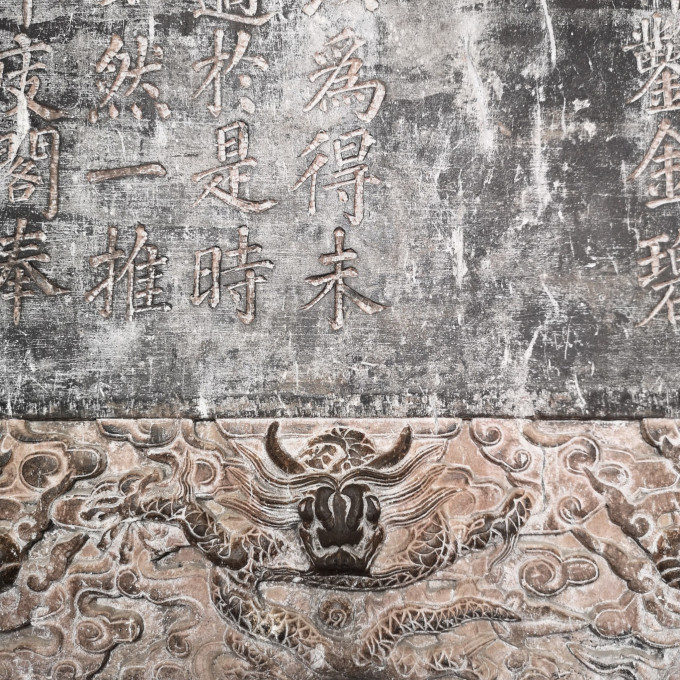 鑿金碧
為得未
於是時
然一推
閣奉